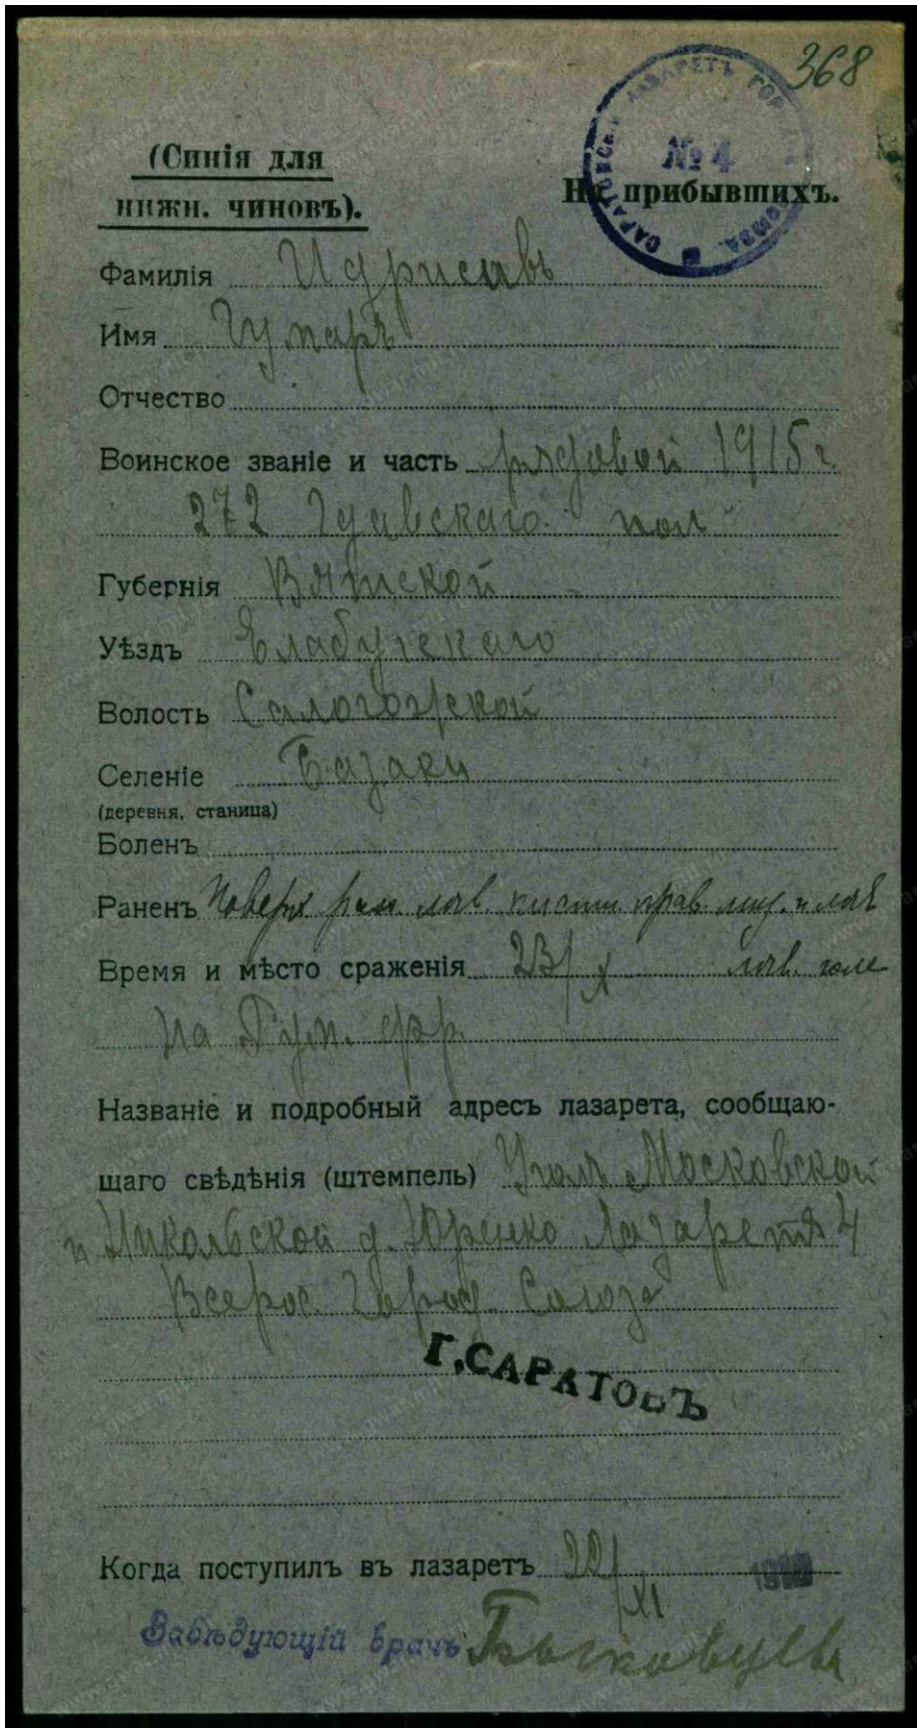 368
САРАТОВСКІЙ ЛАЗАРЕТЪ ГОР. СОЮЗА
№ 4
(Синія для
нижн. чиновъ).
На прибывшихъ.
Фамилія Идрисавъ
Имя Гумаръ
Отчество
Воинское званіе и часть рядовой 1915 г.
272 Гдавскаго пол
Губернія Вятской
Уѣздъ Елабугскаго
Волость Салогожской
Селеніе Базаки
(деревня, станица)
Боленъ
Раненъ Поверх ран. лѣв. кисти прав.
Время и мѣсто сраженія 23/X лѣв.
на Рум. фр.
Названіе и подробный адресъ лазарета, сообщаю-
щаго свѣдѣнія (штемпель) Уголъ Московской
и Никольской д. Юренко Лазаретъ 4
Всерос. Город. Союза
Г. САРАТОВЪ
Когда поступилъ въ лазаретъ 20/XI
Завѣдующій врачъ